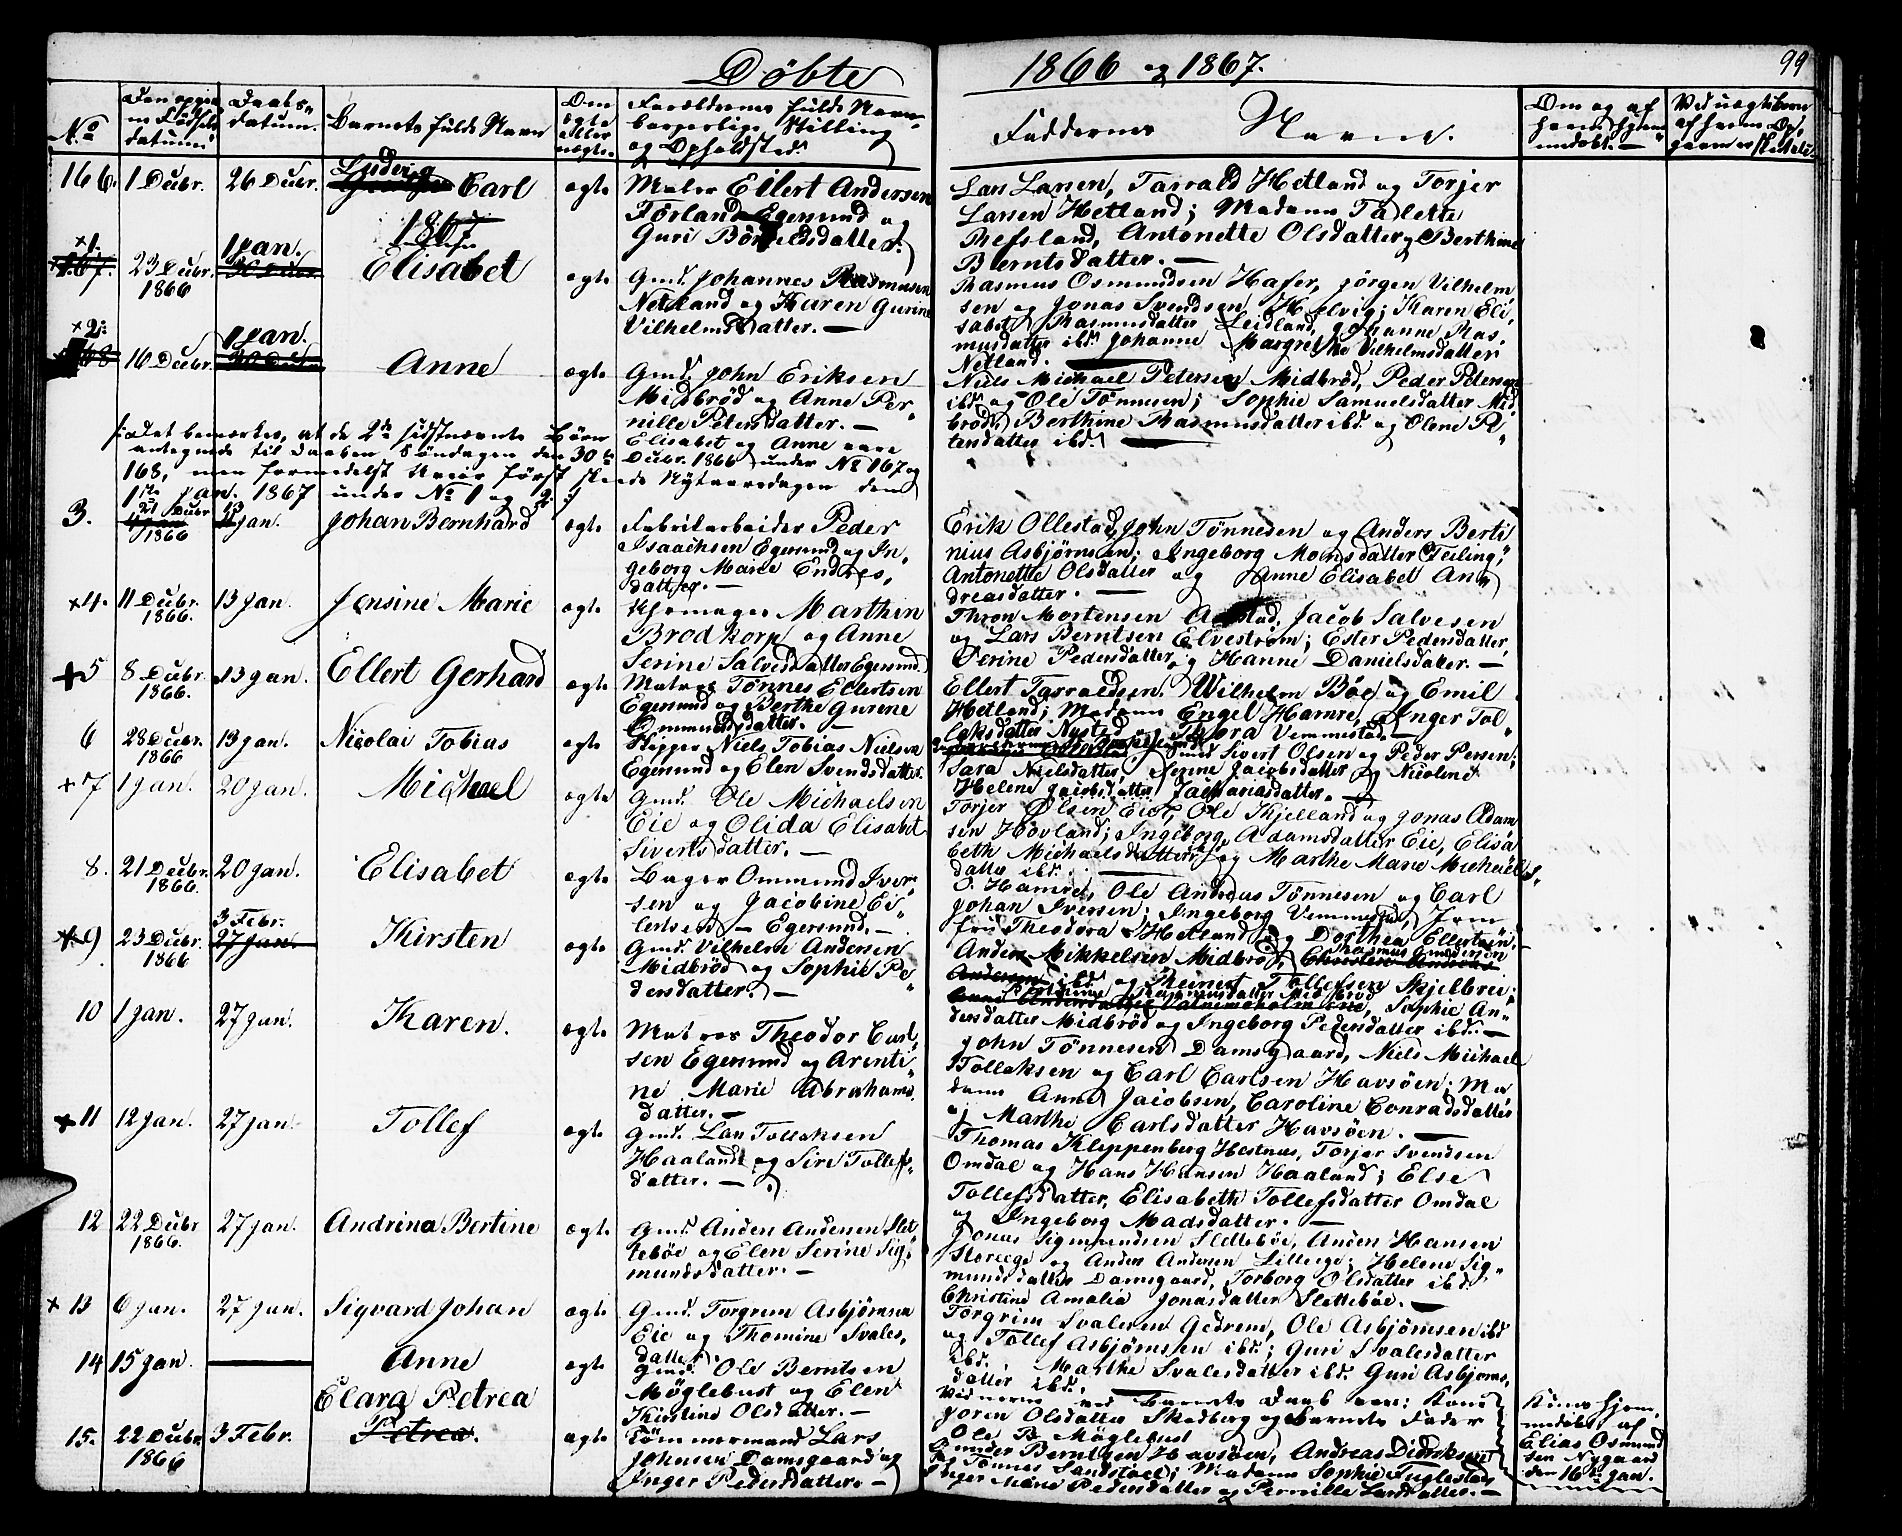 Döbte 1866 og 1867. 99
No
Den opgivne Födselsdatum.
Daabsdatum.
Barnets fulde Navn
Om ægte eller uægte.
Forældrenes fulde Navn borgerlige Stilling og Opholdsted.
Faddernes Navne.
Om og af hvem hjemmedöbt.
166. 1 Decbr. 26 Decbr. Ludvig Carl ægte Maler Eilert Andersen
Förland Egersund og
Guri Börjelsdatter.
Lars Larsen, Tarrald Hetland og Torjer
Larsen Hetland; Madame Talette
Refsland, Antonette Olsdatter og Berthine
Berntsdatter. —
1867
×1. 167. 23 Decbr. 1866 1 Jan. 30 Decbr. Elisabet ægte Gmd. Johannes Rasmusen
Netland og Karen Gurine
Vilhelmsdatter. —
Rasmus Osmundsen Hafer, Jörgen Vilhelm
sen og Jonas Svendsen Helvig; Karen Eli,
sabet Rasmusdatter Leidland, Johanne Ras,
musdatter ibd. Johanne Margrethe Vilhelmsdatter
Netland.
×2. 168 16 Decbr. 1 Jan. Anne ægte Gmd. John Eriksen
Midbröd og Anne Per,
nille Petersdatter. —
Niels Michael Petersen Midbröd, Peder Petersen
ibd. og Ole Tönnesen; Sophie Samuelsdatter Mid,
bröd, Berthine Rasmusdatter ibd. og Olene Pe,
tersdatter ibd.
/: Det bemærkes, at de 2de sidstnævnte Börn Elisabet og Anne vare
antegnede til Daaben Söndagen den 30te Decbr. 1866 under No 167 og
168, men formedelst Uveir först skede Nytaarsdagen den
1ste Jan. 1867 under No 1 og 2. :/
3. 31 Decbr 1866 13 Jan. Johan Bernhard ægte Fabrikarbeider Peder
Isaachsen Egersund og In,
geborg Marie Endres,
datter. —
Erik Ollestad, John Tönnesen og Anders Berti
nius Asbjörnsen; Ingeborg Monsdatter Teiling,
Antonette Olsdatter og Anne Elisabet An,
dreasdatter. —
×4. 11 Decbr. 1866. 13 Jan. Jensine Marie ægte Uhrmager Marthin
Brodkorp og Anne
Serine Salvesdatter Egersund.
Thron Mortensen Aarstad, Jacob Salvesen
og Lars Berntsen Elveström; Ester Pedersdatter,
Serine Pedersdatter og Hanne Danielsdatter. —
+5 8 Decbr 1866. 13 Jan. Ellert Gerhard ægte Matros Tönnes Ellertsen
Egersund og Berthe Gurene
Ommundsdatter. —
Ellert Tarraldsen, Wilhelm Böe og Emil
Hetland; Madame Engel Hamre, Inger Tol,
laksdatter Nysted, Thora Vemmestad. —
6 28 Decbr. 1866 13 Jan. Nicolai Tobias ægte Skipper Niels Tobias Nielsen
Egersund og Elen Svendsdatter.
Sivert Olsen og Peder Persen;
Sara Nielsdatter, Serine Jacobsdatter og Nicoline
Helene Jacobsdatter Zachariasdatter. —
+7 1 Jan. 20 Jan. Michael ægte Gmd. Ole Michaelsen
Eie og Olida Elisabet
Sivertsdatter. —
Torjer Olsen Eie, Ole Kjelland og Jonas Adam
sen Hovland; Ingeborg Adamsdatter Eie, Elisa
beth Michaelsdatter og Marthe Marie Michaels,
datter ibd.
8. 21 Decbr. 1866. 20 Jan. Elisabet ægte Bager Ommund Iver,
sen og Jacobine Ei,
lertsen — Egersund. —
O. Hamre, Ole Andreas Tönnesen og Carl
Johan Iversen; Ingeborg Vemmestad, Jom
fru Theodora Hetland og Dorthea Ellertsen.
+9 23 Decbr. 1866 3 Febr. 27 Jan. Kirsten ægte Gmd. Vilhelm Andersen
Midbröd og Sophie Pe,
dersdatter. —
Anders Mikkelsen Midbröd,
Andersen ibd. og Reinert Tollefsen Skjelbrei;
Sophie An,
dersdatter Midbröd og Ingeborg Pedersdatter ibd. —
10 1 Jan. 27 Jan. Karen. ægte Matros Theodor Carl,
sen Egersund og Arenti,
ne Marie Abrahams,
datter. —
John Tönnesen Damsgaard, Niels Michael
Tollaksen og Carl Carlsen Havsöen; Ma
dame Anne Jacobsen, Caroline Conradsdatter
og Marthe Carlsdatter Havsöen. —
+11 12 Jan. 27 Jan. Tollef ægte Gmd. Lars Tollaksen
Haaland og Siri Tollefs,
datter. —
Thomas Kleppenberg Hestnes, Torjer Svendsen
Omdal og Hans Hansen Haaland; Else
Tollefsdatter, Elisabeth Tollefsdatter Omdal
og Ingeborg Madsdatter. —
12 22 Decbr 1866. 27 Jan. Andrina Bertine ægte Gmd. Anders Andersen Slet
teböe og Elen Serine Sig,
mundsdatter. —
Jonas Sigmundsen Sletteböe, Anders Hansen
Storeege og Anders Andersen Lilleege; Helene Sig,
mundsdatter Damsgaard, Torborg Olsdatter ibd.
Christine Amalia Jonasdatter Sletteböe. —
× 13 6 Jan. 27 Jan. Sigvard Johan ægte Gmd. Torgrim Asbjörnsen
Eie og Thomine Svales,
datter.
Torgrim Svalesen Gedrem, Ole Asbjörnsen ibd
og Tollef Asbjörnsen ibd.; Guri Svalesdatter
ibd. Marthe Svalesdatter ibd. Guri Asbjörns,
datter ibd.
14 15 Jan — Anne ægte Gmd. Ole Berntsen
Möglebust og Elen
Kirstine Olsdatter. —
Vidnerne ved Barnets Daab vare: Kone
Joren Olsdatter Skadberg og Barnets Fader
Ole B. Möglebust
Kun hjem,
medöbt af
Elias Osmund
sen Nygaard
den 16de Jan.
15. 22 Decbr 1866 3 Febr. Clara Petrea Petrea. ægte Tömmermand Lars
Johnsen Damsgaard og
Inger Pedersdatter. —
Gunder Berntsen Havsöen, Andreas Didriksen
og Tönnes Sandstöel; Madame Sophie Fuglestad,
Inger Marie Pedersdatter og Pernille Larsdatter. —